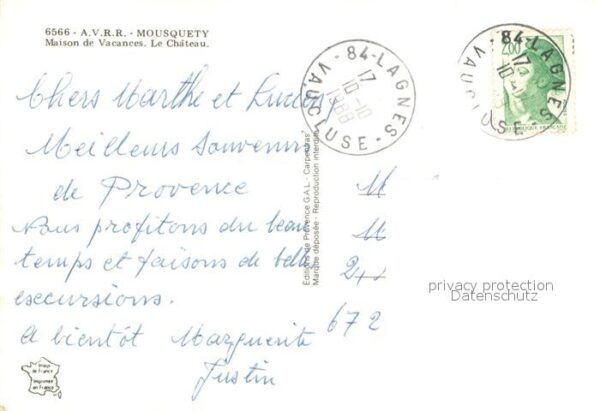 6566 - A.V.R.R. - MOUSQUETY
Maison de Vacances. Le Château.
Chers Marthe et Lucien
Meilleurs Souvenirs
de Provence
Nous profitons du beau
temps et faisons de belles
excursions.
A bientôt Marguerite
Justin
Editions de Provence G.A.L - Carpentras
Marque déposée - Reproduction interdite
84-LAGNES
17
10-10
1988
VAUCLUSE
2,00
84-LAGNES
17
VAUCLUSE
REPUBLIQUE FRANCAISE
M
M
672
privacy protection
Datenschutz
Image
de France
Imprimée
en France